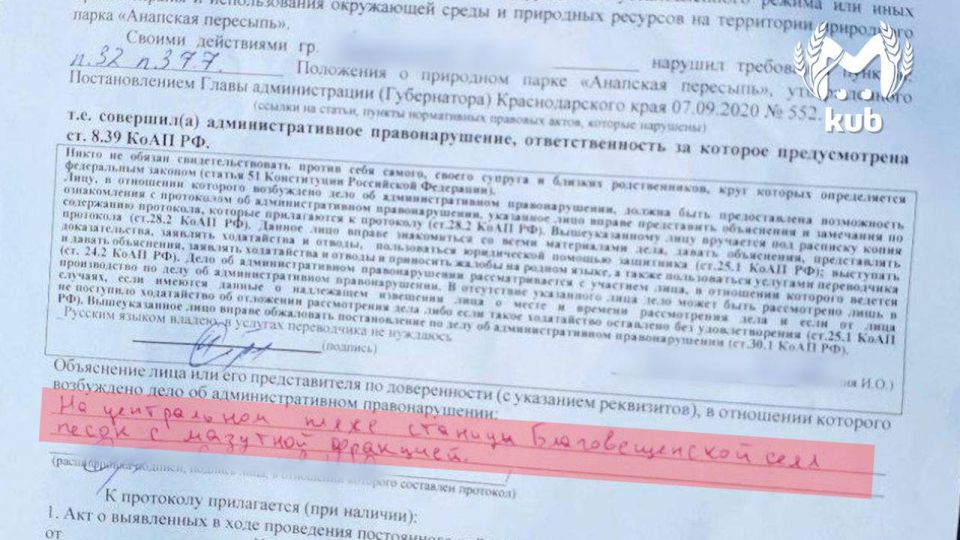 использования окружающей среды и природных ресурсов на территории природного
парка «Анапская пересыпь».
Своими действиями гр.
нарушил
п.32 п.377. Положения о природном парке «Анапская пересыпь»,
Постановлением Главы администрации (Губернатора) Краснодарского края 07.09.2020 № 552.
(ссылки на статьи, пункты нормативных правовых актов, которые нарушены)
т.е. совершил(а) административное правонарушение, ответственность за которое предусмотрена
ст. 8.39 КоАП РФ.
Никто не обязан свидетельствовать против себя самого, своего супруга и близких родственников, круг которых определяется
федеральным законом (статья 51 Конституции Российской Федерации).
Лицу, в отношении которого возбуждено дело об административном правонарушении, должна быть предоставлена возможность
ознакомления с протоколом об административном правонарушении, указанное лицо вправе представить объяснения и замечания по
содержанию протокола, которые прилагаются к протоколу (ст.28.2 КоАП РФ). Вышеуказанному лицу вручается под расписку копия
протокола (ст.28.2 КоАП РФ). Данное лицо вправе знакомиться со всеми материалами дела, давать объяснения, представлять
доказательства, заявлять ходатайства и отводы, пользоваться юридической помощью защитника (ст.25.1 КоАП РФ); выступать
и давать объяснения, заявлять ходатайства и отводы и приносить жалобы на родном языке, а также пользоваться услугами переводчика
(ст. 24.2 КоАП РФ). Дело об административном правонарушении рассматривается с участием лица, в отношении которого ведется
производство по делу об административном правонарушении. В отсутствие указанного лица дело может быть рассмотрено лишь в
случаях, если имеются данные о надлежащем извещении лица о месте и времени рассмотрения дела и если от лица
не поступило ходатайство об отложении рассмотрения дела либо если такое ходатайство оставлено без удовлетворения (ст.25.1 КоАП
РФ). Вышеуказанное лицо вправе обжаловать постановление по делу об административном правонарушении (ст.30.1 КоАП РФ).
Русским языком владею, в услугах переводчика не нуждаюсь
(подпись)
И.О.)
Объяснение лица или его представителя по доверенности (с указанием реквизитов), в отношении которого
возбуждено дело об административном правонарушении:
На центральном пляже станицы Благовещенской сеял
песок с мазутной фракцией.
(расшифровка подписи, подпись лица, в отношении которого составлен протокол)
К протоколу прилагается (при наличии):
1. Акт о выявленных в ходе проведения
от
kub